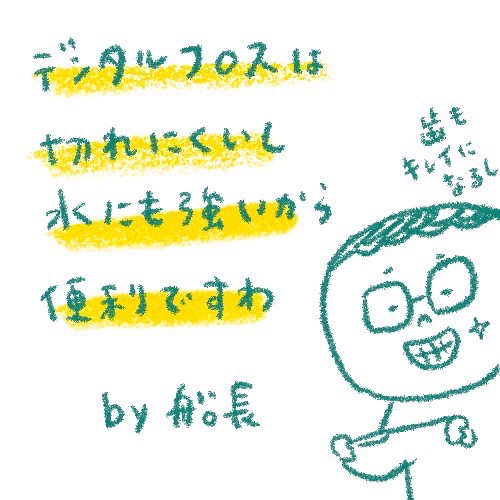 デンタルフロスは
切れにくいし
水にも強いから
便利ですわ
by 船長
歯も
キレイに
なるし